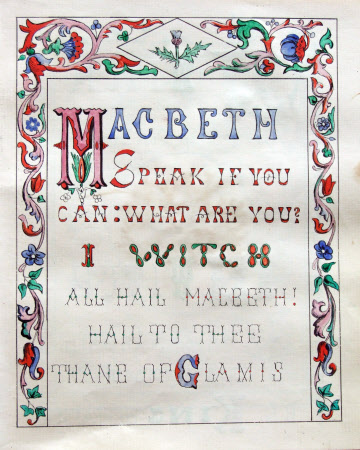 MACBETH
SPEAK IF YOU
CAN: WHAT ARE YOU?
I WITCH
ALL HAIL MACBETH!
HAIL TO THEE
THANE OF GLAMIS